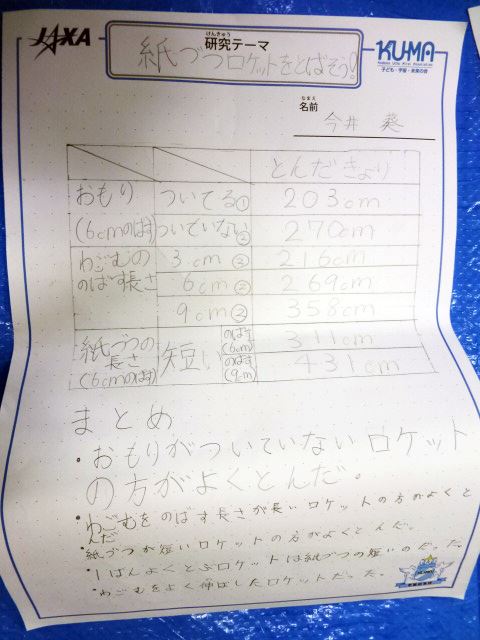 JAXA
けんきゅう
研究テーマ
紙づつロケットをとばそう!
KUMA
子ども・宇宙・未来の会
なまえ
名前
今井 葵
とんだきょり
おもり ついてる① 203cm
(6cmのばす) ついていない② 270cm
わごむの 3cm③ 216cm
のばす長さ 6cm② 269cm
9cm③ 358cm
紙づつの長さ(6cmのばす) 短い のばす(6cm) 311cm
のばす(9cm) 431cm
まとめ
・おもりがついていないロケット
の方がよくとんだ。
・わごむをのばす長さが長いロケットの方がよくと
んだ
・紙づつが短いロケットの方がよくとんだ。
・1ばんよくとぶロケットは紙づつの短いのだった。
・わごむをよく伸ばしたロケットだった。